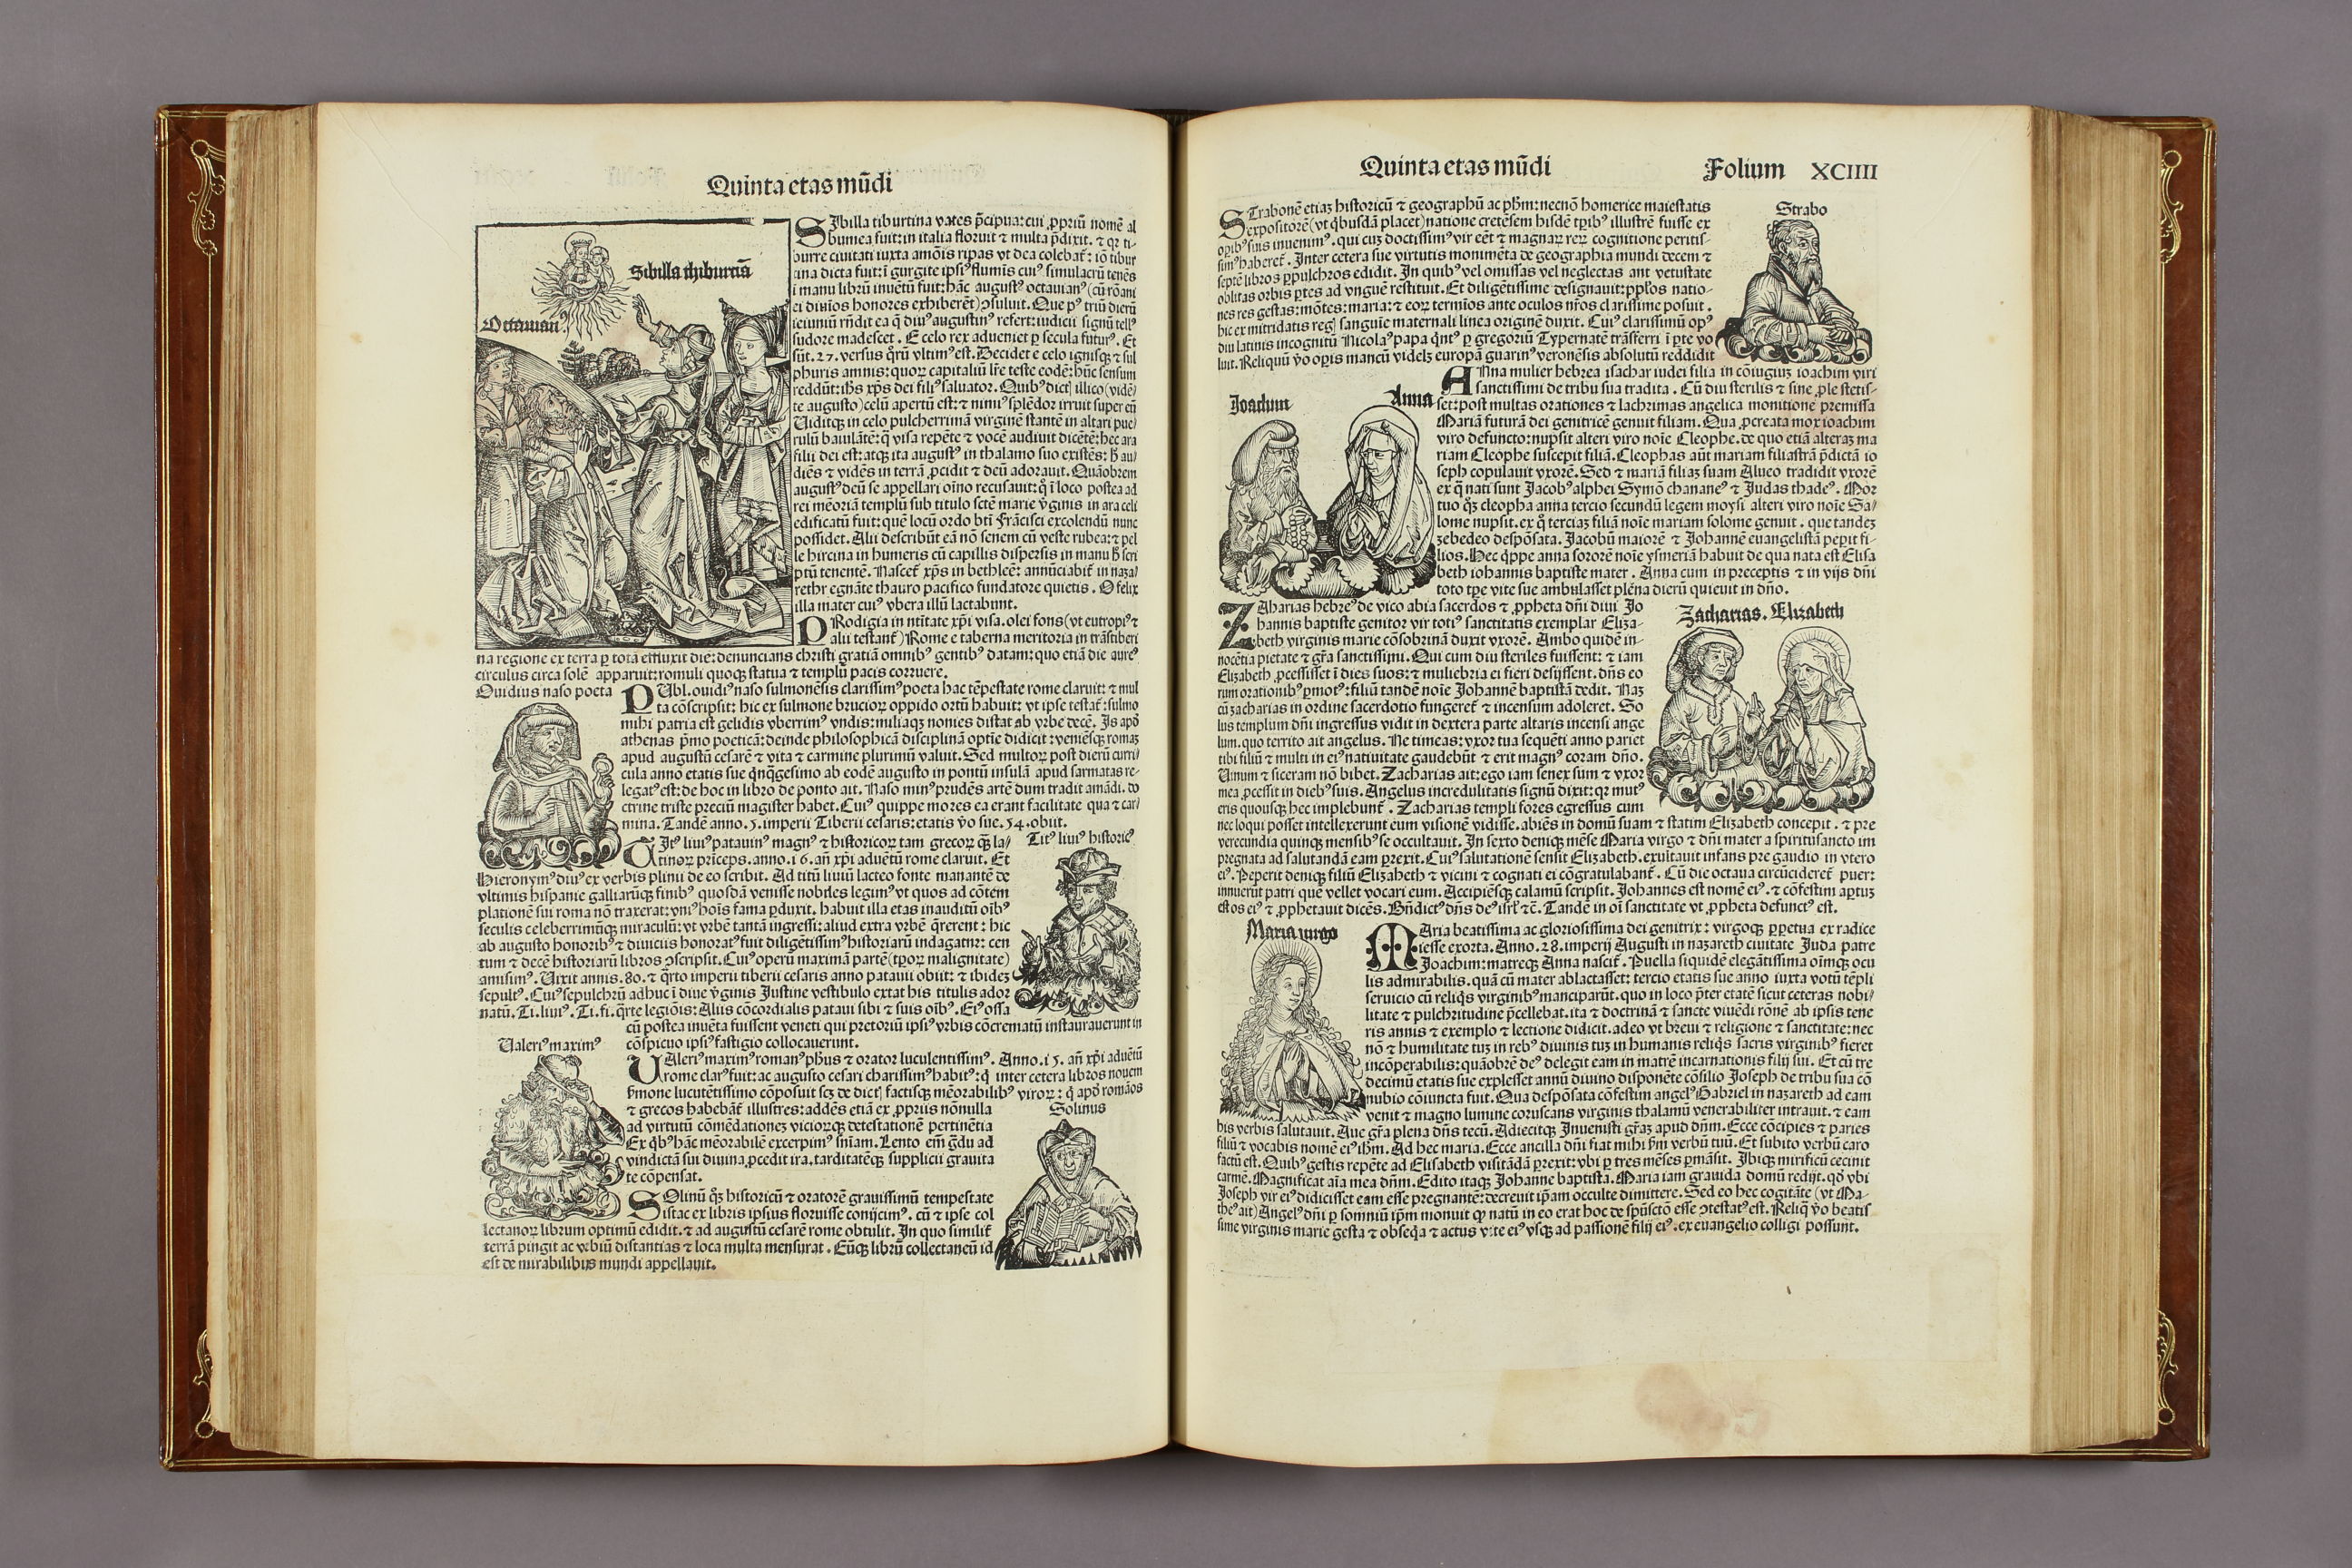 Quinta etas mūdi
Sibilla thiburtiā
Octauianꝰ
SIbilla tiburtina vates p̄cipua: cui ꝓpriū nomē al
bumea fuit: in italia floruit ⁊ multa p̄dixit. ⁊ qr ti-
burre ciuitati iuxta amōis ripas vt dea colebat̄: iō tibur
tina dicta fuit: ī gurgite ipsiꝰ flumīs cuiꝰ simulacrū tenēs
i manu librū inuētū fuit: hāc augustꝰ octauianꝰ (cū rōani
ei diuīos honores exhiberēt) ↄsuluit. Que pꝰ triū dierū
ieiuniū rn̄dit ea q̄ diuꝰ augustinꝰ refert: iudicii signū tellꝰ
sudore madescet. E celo rex adueniet ꝑ secula futurꝰ. Et
sūt .27. versus q̄rū vltimꝰ est. Decidet e celo ignisqꝫ ⁊ sul
phuris amnis: quoꝝ capitaliū lr̄e teste eodē: hūc sensum
reddūt: ih̄s xp̄s dei filiꝰ saluator. Quibꝰ dictꝭ illico (vidē/
te augusto) celū apertū est: ⁊ nimiꝰ splēdor irruit super eū
Uiditqꝫ in celo pulcherrimā virginē stantē in altari pue/
rulū baiulātē: q̄ visa repēte ⁊ vocē audiuit dicētē: hec ara
filii dei est: atqꝫ ita augustꝰ in thalamo suo existēs: h̄ au/
diēs ⁊ vidēs in terrā ꝓcidit ⁊ deū adorauit. Quāobrem
augustꝰ deū se appellari oīno recusauit: q̄ ī loco postea ad
rei mēoriā templū sub titulo scte marie v̄ginis in ara celi
edificatū fuit: quē locū ordo bt̄i Frācisci excolendū nunc
possidet. Alii describūt eā nō senem cū veste rubea: ⁊ pel
le hircina in humeris cū capillis dispersis in manu h̄ scri
ptū tenentē. Nascet̄ xp̄s in bethleē: annūciabit̄ in naza/
rethr egnāte thauro pacifico fundatore quietis. O felix
illa mater cuiꝰ vbera illū lactabunt.
PRodigia in nt̄itate xp̄i visa. olei fons (vt eutropiꝰ ⁊
alii testant̄) Rome e taberna meritoria in trāstiberi
na regione ex terra ꝑ totā effluxit diē: denuncians christi gratiā omnibꝰ gentibꝰ datam: quo etiā die aureꝰ
circulus circa solē apparuit: romuli quoqꝫ statua ⁊ templū pacis corruere.
Ouidius naso poeta
PUbl. ouidiꝰ naso sulmonēsis clarissimꝰ poeta hac tēpestate rome claruit: ⁊ mul
ta cōscripsit: hic ex sulmone brucioꝝ oppido ortū habuit: vt ipse testat̄: sulmo
mihi patria est gelidis vberrimꝰ vndis: miliaqꝫ nonies distat ab vrbe decē. Is apd̄
athenas p̄mo poeticā: deinde philosophicā disciplinā optīe didicit: veniēsqꝫ romaꝫ
apud augustū cesarē ⁊ vita ⁊ carmine plurimū valuit. Sed multoꝝ post dierū curri/
cula anno etatis sue q̄nq̄gesimo ab eodē augusto in pontū insulā apud sarmatas re-
legatꝰ est: de hoc in libro de ponto ait. Naso minꝰ prudēs artē dum tradit amādi. do
ctrine triste preciū magister habet. Cuiꝰ quippe mores ea erant facilitate qua ⁊ car/
mina. Tandē anno .5. imperii Tiberii cesaris: etatis v̄o sue .54. obiit.
Titꝰ liuiꝰ historicꝰ
TItꝰ liuiꝰ patauinꝰ magnꝰ ⁊ historicoꝝ tam grecoꝝ qꝫ la/
tinoꝝ princeps. anno .16. an̄ xp̄i aduētū rome claruit. Et
Hieronymꝰ diuꝰ ex verbis plinii de eo scribit. Ad titū liuiū lacteo fonte manantē de
vltimis hispanie galliarūqꝫ finibꝰ quosdā venisse nobiles legimꝰ vt quos ad cōtem
platione̅ sui roma nō traxerat: vniꝰ hoīs fama ꝑduxit. habuit illa etas inauditū oībꝰ
seculis celeberrimūqꝫ miraculū: vt vrbē tantā ingressi: aliud extra vrbē q̄rerent: hic
ab augusto honoribꝰ ⁊ diuiciis honoratꝰ fuit diligētissimꝰ historiarū indagator: cen
tum ⁊ decē historiarū libros ↄscripsit. Cuiꝰ operū maximā partē (tꝑoꝝ malignitate)
amisimꝰ. Uixit annis .80. ⁊ q̄rto imperii tiberii cesaris anno patauii obiit: ⁊ ibideꝫ
sepultꝰ. Cuiꝰ sepulchrū adhuc ī diue v̄ginis Justine vestibulo extat his titulis ador
natū. Ti. liuiꝰ. Ti. fi. q̄rte legiōis: Aliis cōcordialis pataui sibi ⁊ suis oībꝰ. Eiꝰ ossa
cū postea inuēta fuissent veneti qui pretoriū ipsiꝰ vrbis cōcrematū instaurauerunt in
cōspicuo ipsiꝰ fastigio collocauerunt.
Ualeriꝰ maximꝰ
UAleriꝰ maximꝰ romanꝰ ph̄us ⁊ orator luculentissimꝰ. Anno .15. an̄ xp̄i aduētū
rome clarꝰ fuit: ac augusto cesari charissimꝰ habitꝰ: q̄ inter cetera libros nouem
s̄mone lucutētissimo cōposuit scꝫ de dictꝭ factisqꝫ mēorabilibꝰ viroꝝ: q̄ apd̄ romāos
⁊ grecos habebāt̄ illustres: addēs etiā ex ꝓpriis nōnulla
ad virtutū cōmēdationeꝫ viciorūqꝫ detestationē pertinētia
Ex q̄bꝰ hāc mēorabilē excerpimꝰ sn̄iam. Lento em̄ ḡdu ad
vindictā sui diuina ꝓcedit ira. tarditatēqꝫ supplicii grauita
te cōpensat.
Solinus
SOlinū qꝫ historicū ⁊ oratorē grauissimū tempestate
istac ex libris ipsius floruisse conijcimꝰ. cū ⁊ ipse col
lectanoꝝ librum optimū edidit. ⁊ ad augustū cesarē rome obtulit. In quo similit̄
terrā pingit ac vrbiū distantias ⁊ loca multa mensurat. Eūqꝫ librū collectaneū id
est de mirabilibus mundi appellauit.
Quinta etas mūdi Folium XCIIII
Strabo
STrabonē etiaꝫ historicū ⁊ geographū ac ph̄m: necnō homerice maiestatis
expositorē (vt q̄busdā placet) natione cretēsem hisdē tꝑibꝰ illustrē fuisse ex
opibꝰ suis inuenimꝰ. qui cuꝫ doctissimꝰ vir eēt ⁊ magnaꝝ reꝝ cognitione peritis-
simꝰ haberet̄. Inter cetera sue virtutis monimēta de geographia mundi decem ⁊
septē libros ꝑpulchros edidit. In quibꝰ vel omissas vel neglectas aut vetustate
oblitas orbis ꝑtes ad vnguē restituit. Et diligētissime designauit: pplōs natio-
nes res gestas: mōtes: maria: ⁊ eoꝝ termīos ante oculos nr̄os clarissime posuit.
hic ex mitridatis regꝭ sanguīe maternali linea originē duxit. Cuiꝰ clarissimū opꝰ
diu latinis incognitū Nicolaꝰ papa q̄ntꝰ ꝑ gregoriū Typernatē trāsferri ī ꝑte vo
luit. Reliquū v̄o oꝑis mancū videlꝫ europā guarinꝰ veronēsis absolutū reddidit
Joachim Anna
ANna mulier hebrea isachar iudei filia in cōiugiuꝫ ioachim viri
sanctissimi de tribu sua tradita. Cū diu sterilis ⁊ sine ꝓle stetis-
set: post multas orationes ⁊ lachrimas angelica monitione premissa
Mariā futurā dei genitricē genuit filiam. Qua ꝓcreata mox ioachim
viro defuncto: nupsit alteri viro noīe Cleophe. de quo etiā alteraꝫ ma
riam Cleophe suscepit filiā. Cleophas aūt mariam filiastrā p̄dictā io
seph copulauit vxorē. Sed ⁊ mariā filiaꝫ suam Alueo tradidit vxorē
ex q̄ nati sunt Jacobꝰ alphei Symō chananeꝰ ⁊ Judas thadeꝰ. Mor
tuo qꝫ cleopha anna tercio secundū legem moysi alteri viro noīe Sa/
lome nupsit. ex q̄ terciaꝫ filiā noīe mariam solome genuit. que tandeꝫ
zebedeo despōsata. Jacobū maiorē ⁊ Johannē euangelistā peꝑit fi-
lios. Hec q̄ppe anna sororē noīe ysmeriā habuit de qua nata est Elisa
beth iohannis baptiste mater. Anna cum in preceptis ⁊ in vijs dn̄i
toto tꝑe vite sue ambulasset plēna dierū quieuit in dn̄o.
Zacharias. Elizabeth
ZAharias hebreꝰ de vico abia sacerdos ⁊ ꝓpheta dn̄i diui Jo
hannis baptiste genitor vir totiꝰ sanctitatis exemplar Eliza-
beth virginis marie cōsobrinā duxit vxorē. Ambo quidē in-
nocētia pietate ⁊ gr̄a sanctissimi. Qui cum diu steriles fuissent: ⁊ iam
Elizabeth ꝓcessisset ī dies suos: ⁊ muliebria ei fieri desijssent. dn̄s eo
rum orationibꝰ ꝑmotꝰ: filiū tandē noīe Johannē baptistā dedit. Naꝫ
cū zacharias in ordine sacerdotio fungeret̄ ⁊ incensum adoleret. So
lus templum dn̄i ingressus vidit in dextera parte altaris incensi ange
lum. quo territo ait angelus. Ne timeas: vxor tua sequēti anno pariet
tibi filiū ⁊ multi in eiꝰ natiuitate gaudebūt ⁊ erit magnꝰ coram dn̄o.
Uinum ⁊ siceram nō bibet. Zacharias ait: ego iam senex sum ⁊ vxor
mea ꝓcessit in diebꝰ suis. Angelus incredulitatis signū dixit: qr mutꝰ
eris quousqꝫ hec implebunt̄. Zacharias templi fores egressus cum
nec loqui posset intellexerunt eum visionē vidisse. abiēs in domū suam ⁊ statim Elizabeth concepit. ⁊ pre
verecundia quinqꝫ mensibꝰ se occultauit. In sexto deniqꝫ mēse Maria virgo ⁊ dn̄i mater a spiritusancto im
pregnata ad salutandā eam ꝑrexit. Cuiꝰ salutationē sensit Elizabeth. exultauit infans pre gaudio in vtero
eiꝰ. Peperit deniqꝫ filiū Elizabeth ⁊ vicini ⁊ cognati ei cōgratulabant̄. Cū die octaua circūcideret̄ puer:
innuerūt patri que vellet vocari eum. Accipiēsqꝫ calamū scripsit. Johannes est nomē eiꝰ. ⁊ cōfestim aptuꝫ
est os eiꝰ ⁊ ꝓphetauit dicēs. Bn̄dictꝰ dn̄s deꝰ isrl̄ ⁊c̄. Tandē in oī sanctitate vt ꝓpheta defunctꝰ est.
Maria virgo
MAria beatissima ac gloriosissima dei genitrix: virgoqꝫ ꝑpetua ex radice
iesse exorta. Anno .28. imperij Augusti in nazareth ciuitate Juda patre
Joachim: matreqꝫ Anna nascit̄. Puella siquidē elegātissima oīmqꝫ ocu
lis admirabilis. quā cū mater ablactasset: tercio etatis sue anno iuxta votū tēpli
seruicio cū reliq̄s virginibꝰ manciparūt. quo in loco p̄ter etatē sicut ceteras nobi/
litate ⁊ pulchritudine p̄cellebat. ita ⁊ doctrinā ⁊ sancte viuēdi rōnē ab ipsis tene
ris annis ⁊ exemplo ⁊ lectione didicit. adeo vt breui ⁊ religione ⁊ sanctitate: nec
nō ⁊ humilitate tuꝫ in rebꝰ diuinis tuꝫ in humanis reliq̄s sacris virginibꝰ fieret
incōperabilis: quāobrē deꝰ delegit eam in matrē incarnationis filij sui. Et cū tre
decimū etatis sue explesset annū diuino disponēte cōsilio Joseph de tribu sua cō
nubio cōiuncta fuit. Qua despōsata cōfestim angelꝰ Gabriel in nazareth ad eam
venit ⁊ magno lumine coruscans virginis thalamū venerabiliter intrauit. ⁊ eam
his verbis salutauit. Aue gr̄a plena dn̄s tecū. Adiecitqꝫ Inuenisti gr̄aꝫ apud dn̄m. Ecce cōcipies ⁊ paries
filiū ⁊ vocabis nomē eiꝰ ih̄m. Ad hec maria. Ecce ancilla dn̄i fiat mihi s̄m verbū tuū. Et subito verbū caro
factū est. Quibꝰ gestis repēte ad Elisabeth visitādā ꝑrexit: vbi ꝑ tres mēses ꝑmāsit. Ibiqꝫ mirificū cecinit
carmē. Magnificat aīa mea dn̄m. Edito itaqꝫ Johanne baptista. Maria iam grauida domū redijt. qd̄ vbi
Joseph vir eiꝰ didicisset eam esse pregnantē: decreuit ip̄am occulte dimittere. Sed eo hec cogitāte (vt Ma-
theꝰ ait) Angelꝰ dn̄i ꝑ somniū ip̄m monuit qꝫ natū in eo erat hoc de sp̄uscto esse ↄtestatꝰ est. Reliq̄ v̄o beatis
sime virginis marie gesta ⁊ obseq̄a ⁊ actus vite eiꝰ vsqꝫ ad passionē filij eiꝰ. ex euangelio colligi possunt.